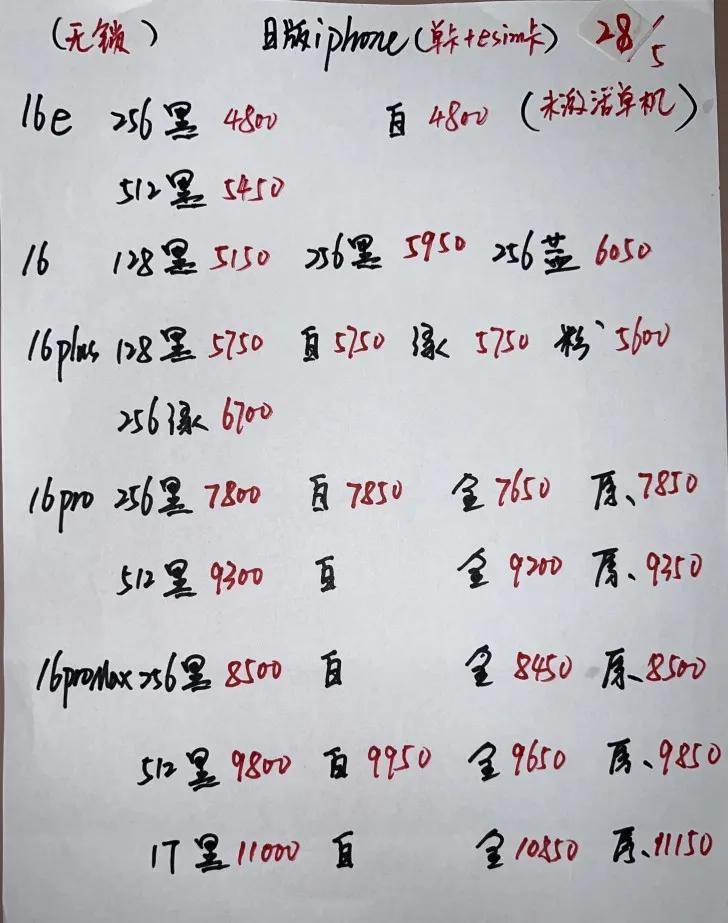 (无锁) 日版iphone(单卡+esim卡) 28/5
16e 256黑 4800 白 4800 (未激活单机)
512黑 5450
16 128黑 5150 256黑 5950 256蓝 6050
16plus 128黑 5750 白 5750 绿 5750 粉 5600
256绿 6700
16pro 256黑 7800 白 7850 金 7650 原、7850
512黑 9300 白 金 9200 原、9350
16proMax 256黑 8500 白 金 8450 原、8500
512黑 9800 白 9950 金 9650 原、9850
1T黑 11000 白 金 10850 原、11150